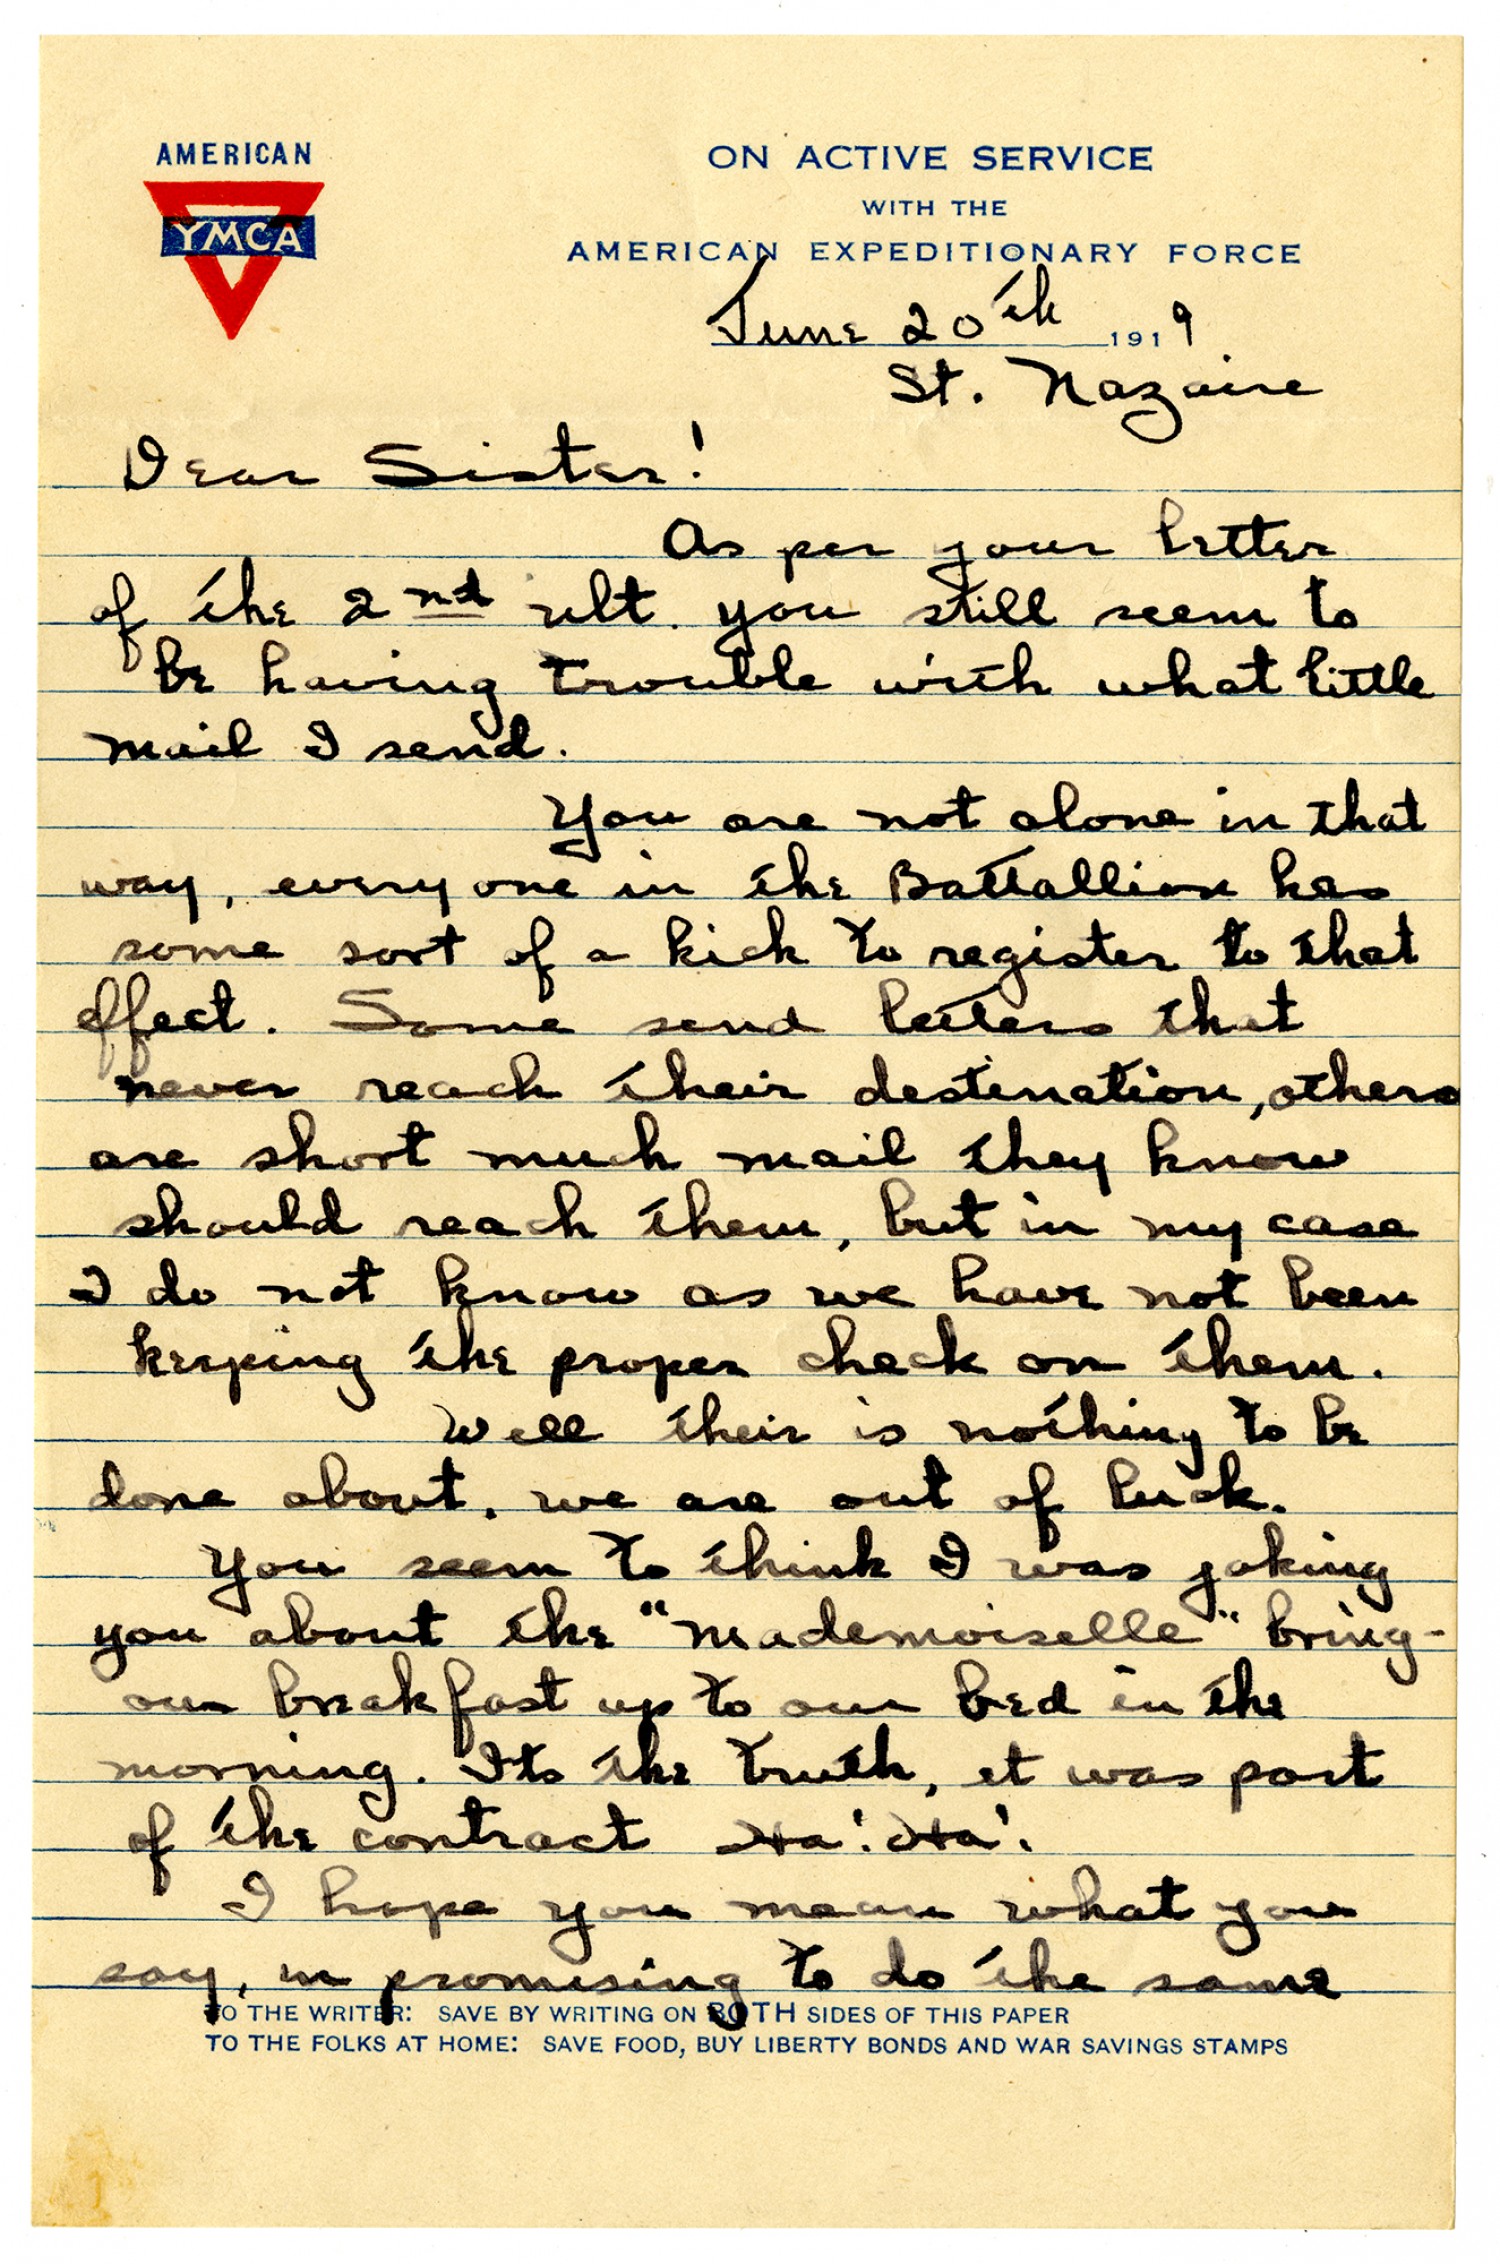 AMERICAN
YMCA
ON ACTIVE SERVICE
WITH THE
AMERICAN EXPEDITIONARY FORCE
June 20th 1919
St. Nazaire
Dear Sister!
As per your letter
of the 2nd ult. you still seem to
be having trouble with what little
mail I send.
You are not alone in that
way, everyone in the Battallion has
some sort of a kick to register to that
effect. Some send letters that
never reach their destination, others
are short much mail they know
should reach them, but in my case
I do not know as we have not been
keeping the proper check on them.
Well their is nothing to be
done about, we are out of luck.
You seem to think I was joking
you about the "Mademoiselle" bring-
our breakfast up to our bed in the
morning. Its the truth, it was part
of the contract Ha! Ha!
I hope you mean what you
say, in promising to do the same
TO THE WRITER: SAVE BY WRITING ON BOTH SIDES OF THIS PAPER
TO THE FOLKS AT HOME: SAVE FOOD, BUY LIBERTY BONDS AND WAR SAVINGS STAMPS